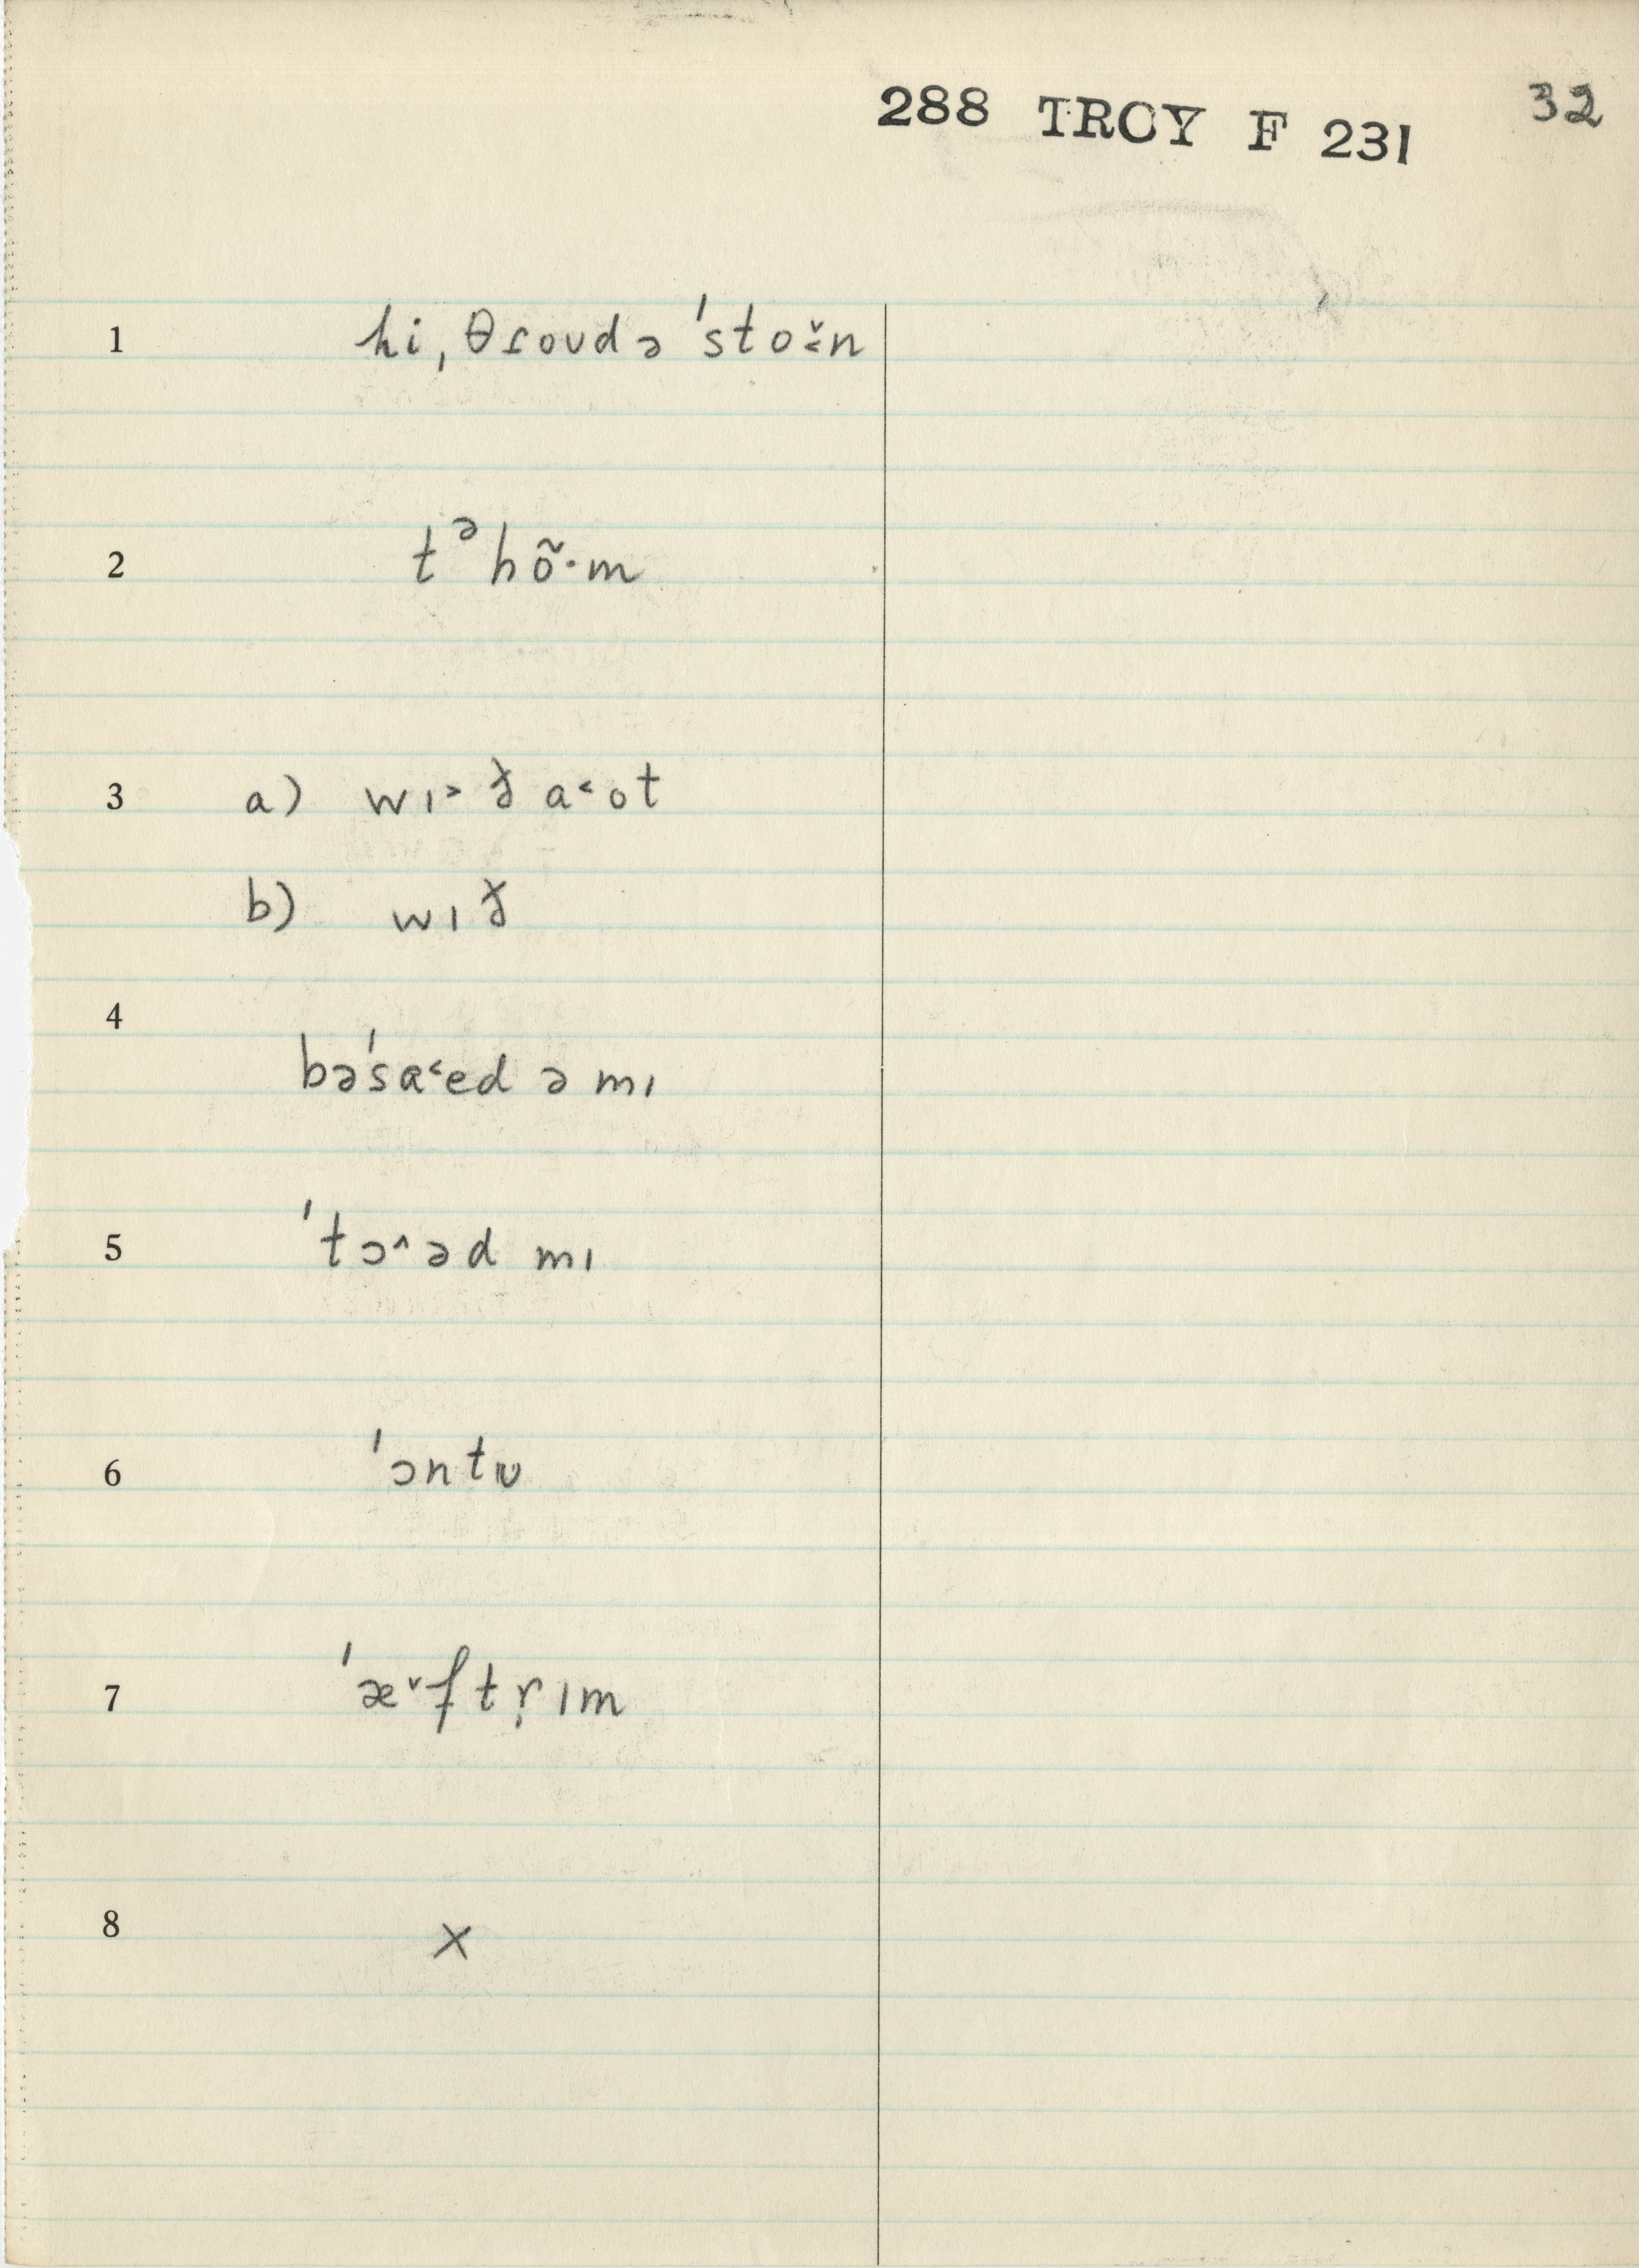 288 TROY F 231 32
1 hi ˌθɾoʊd ə ˈstoˇ˂n
2 tᵊ hõ·m
3 a) wɪ˃ð a˂ot
b) wɪð
4
bəˈsa˂ed ə mɪ
5 ˈtɔ^əd mɪ
6 ˈɔntʊ
7 ˈæˇftṛɪm
8 x